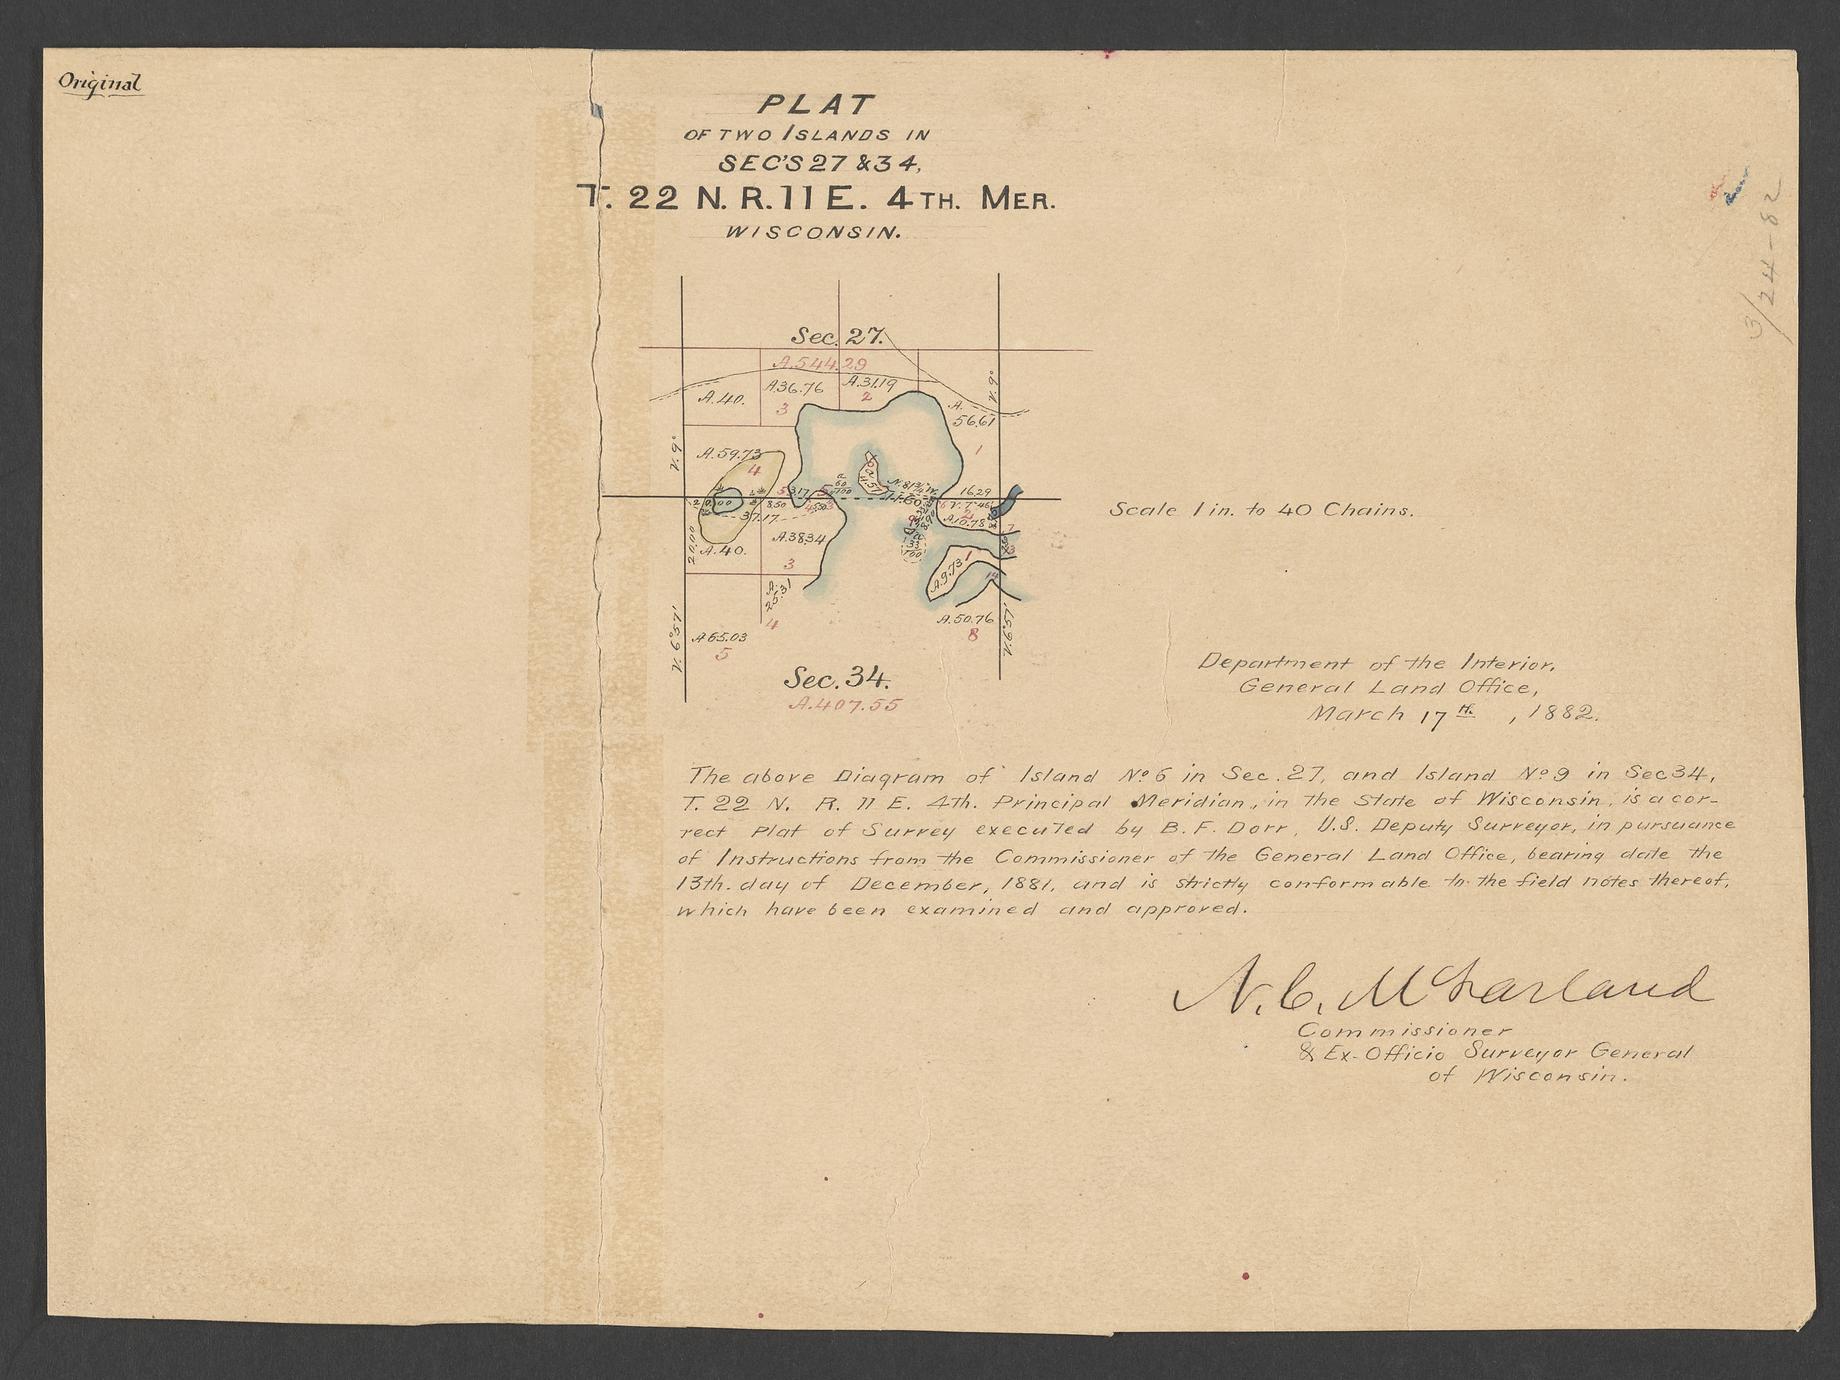 Original
PLAT
OF TWO ISLANDS IN
SEC'S 27 & 34,
T. 22 N. R. 11 E. 4TH. MER.
WISCONSIN.
Sec. 27.
A.544.29
A.40.
A.36.76
3
A.31.19
2
A.
56.61
1
V. 9°
V. 9°
A.59.73
4
16.29
3.17
8.50
37.17
A.10.78
A.40.
20.00
A.38.34
3
A.
25.31
4
A.9.73
1
A.50.76
8
A 65.03
5
V. 6°57'
Sec. 34.
A.407.55
Scale 1 in. to 40 Chains.
3/24-82
Department of the Interior,
General Land Office,
March 17th, 1882.
The above Diagram of Island No 6 in Sec. 27, and Island No 9 in Sec 34,
T. 22 N. R. 11 E. 4th. Principal Meridian, in the State of Wisconsin, is a cor-
rect Plat of Survey executed by B. F. Dorr, U.S. Deputy Surveyor, in pursuance
of Instructions from the Commissioner of the General Land Office, bearing date the
13th. day of December, 1881, and is strictly conformable to the field notes thereof,
which have been examined and approved.
N. C. McFarland
Commissioner
& Ex-Officio Surveyor General
of Wisconsin.